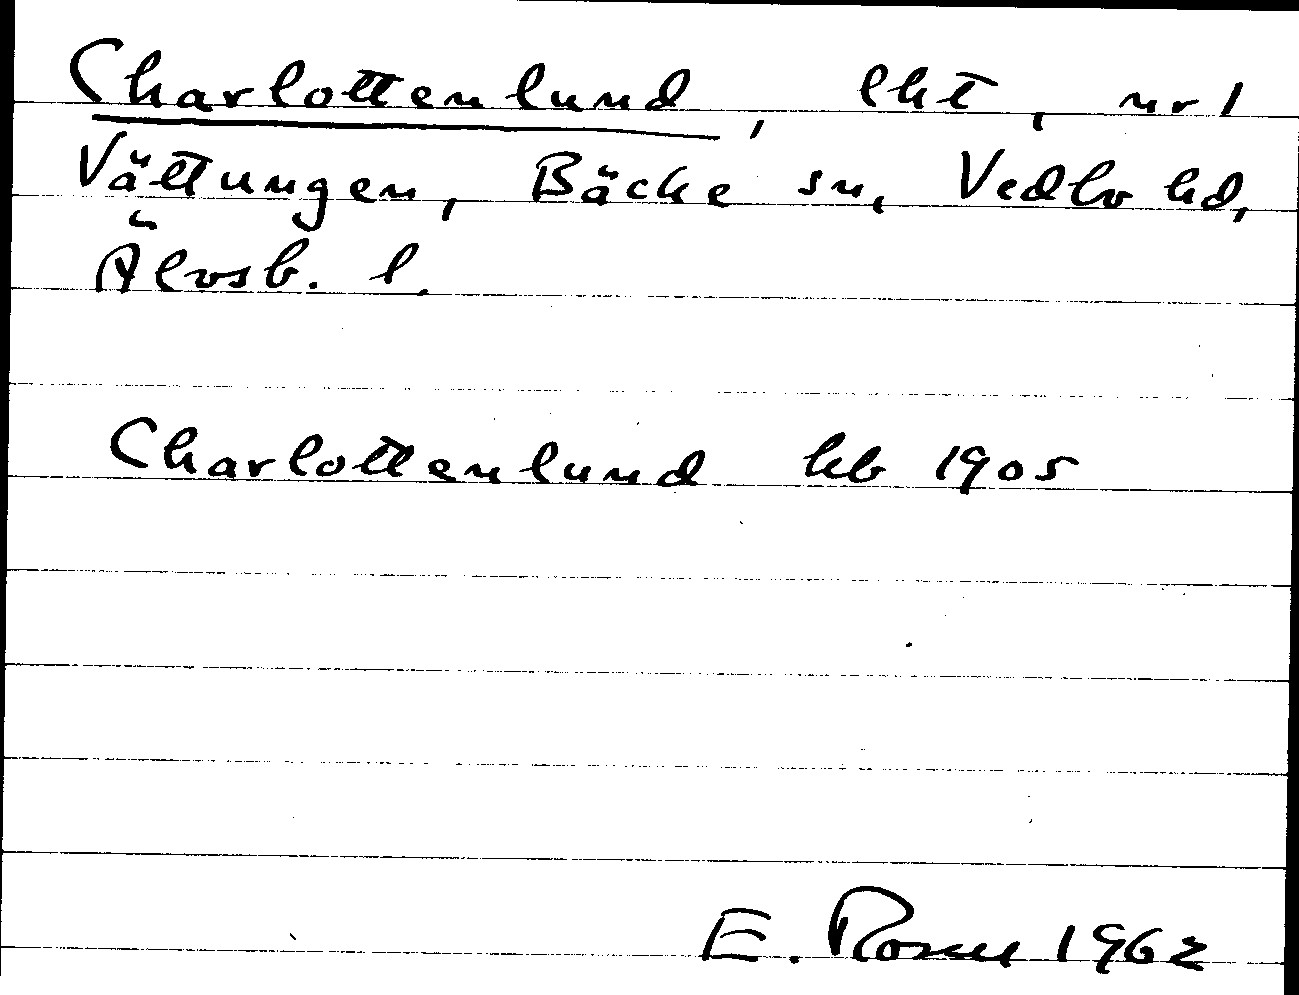 Charlottenlund, lht, nr 1
Vättungen, Bäcke sn, Vedbo hd,
Älvsb. l.
Charlottenlund hb 1905
E. 1962